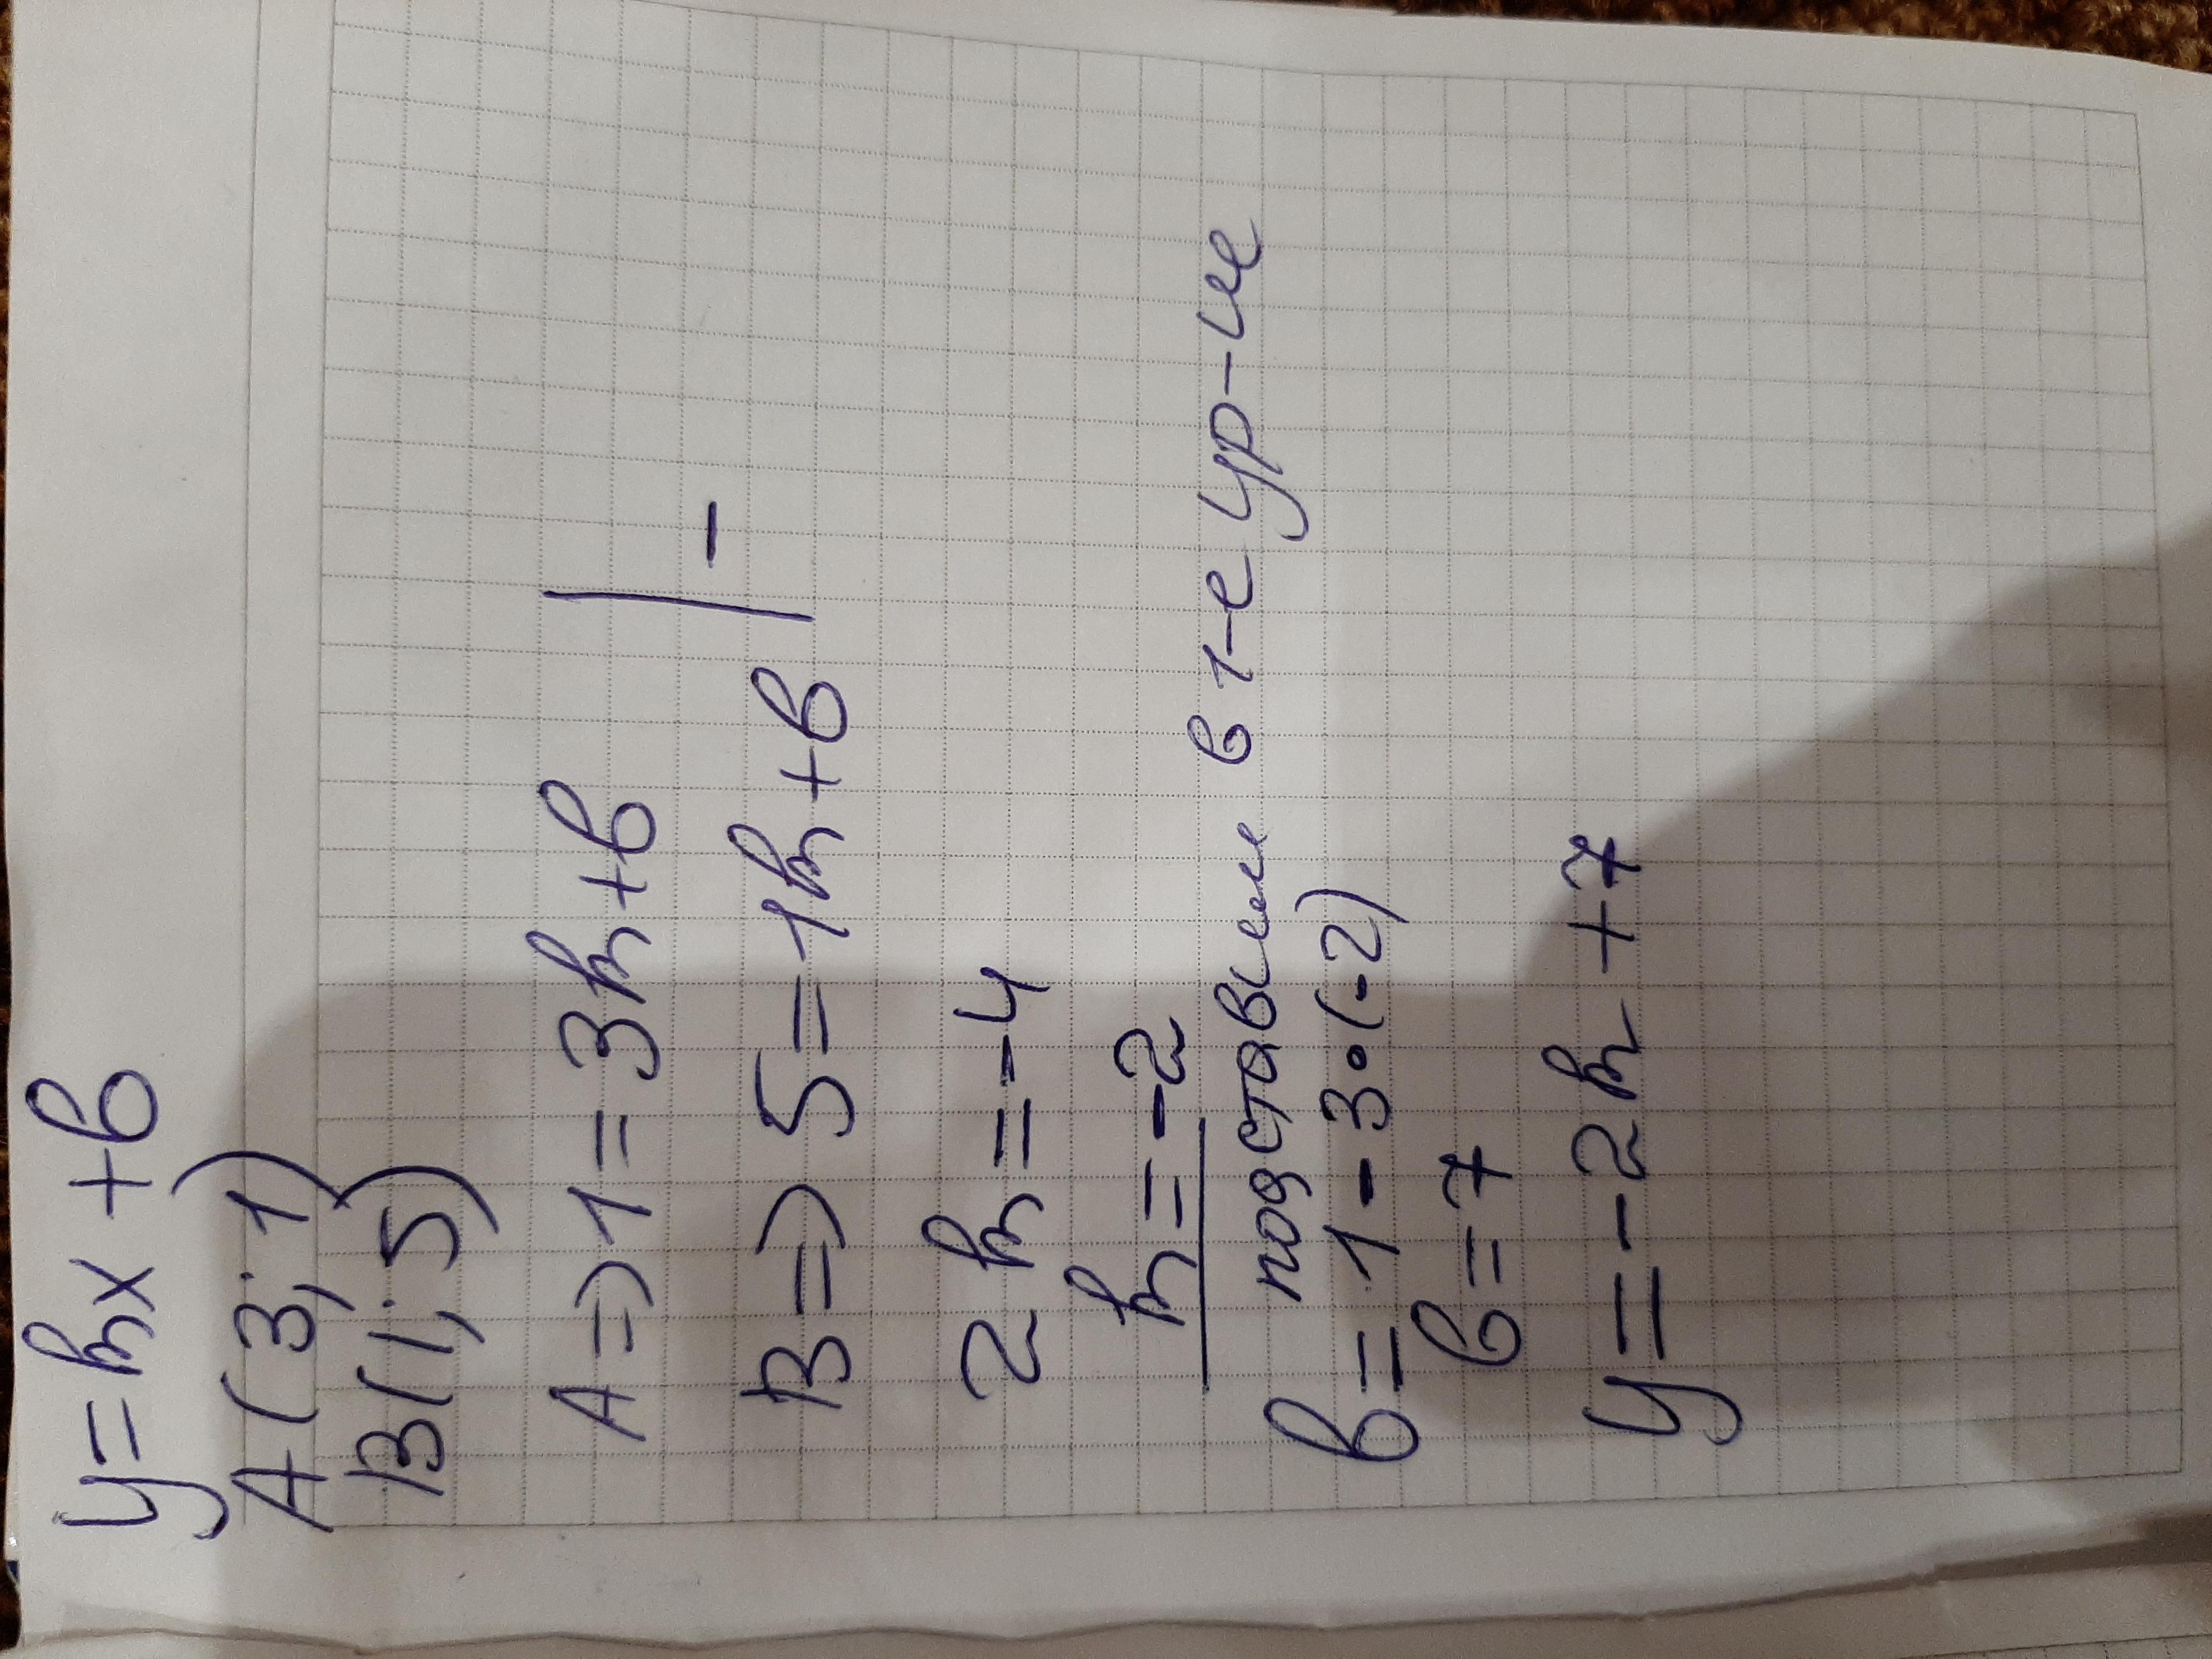 y=kx+b
A(3;1)
B(1;5)
A=>1=3k+b
B=>5=1k+b | -
2k=-4
k=-2
подставим в 1-е ур-ие
b=1-3·(-2)
b=7
y=-2k+7